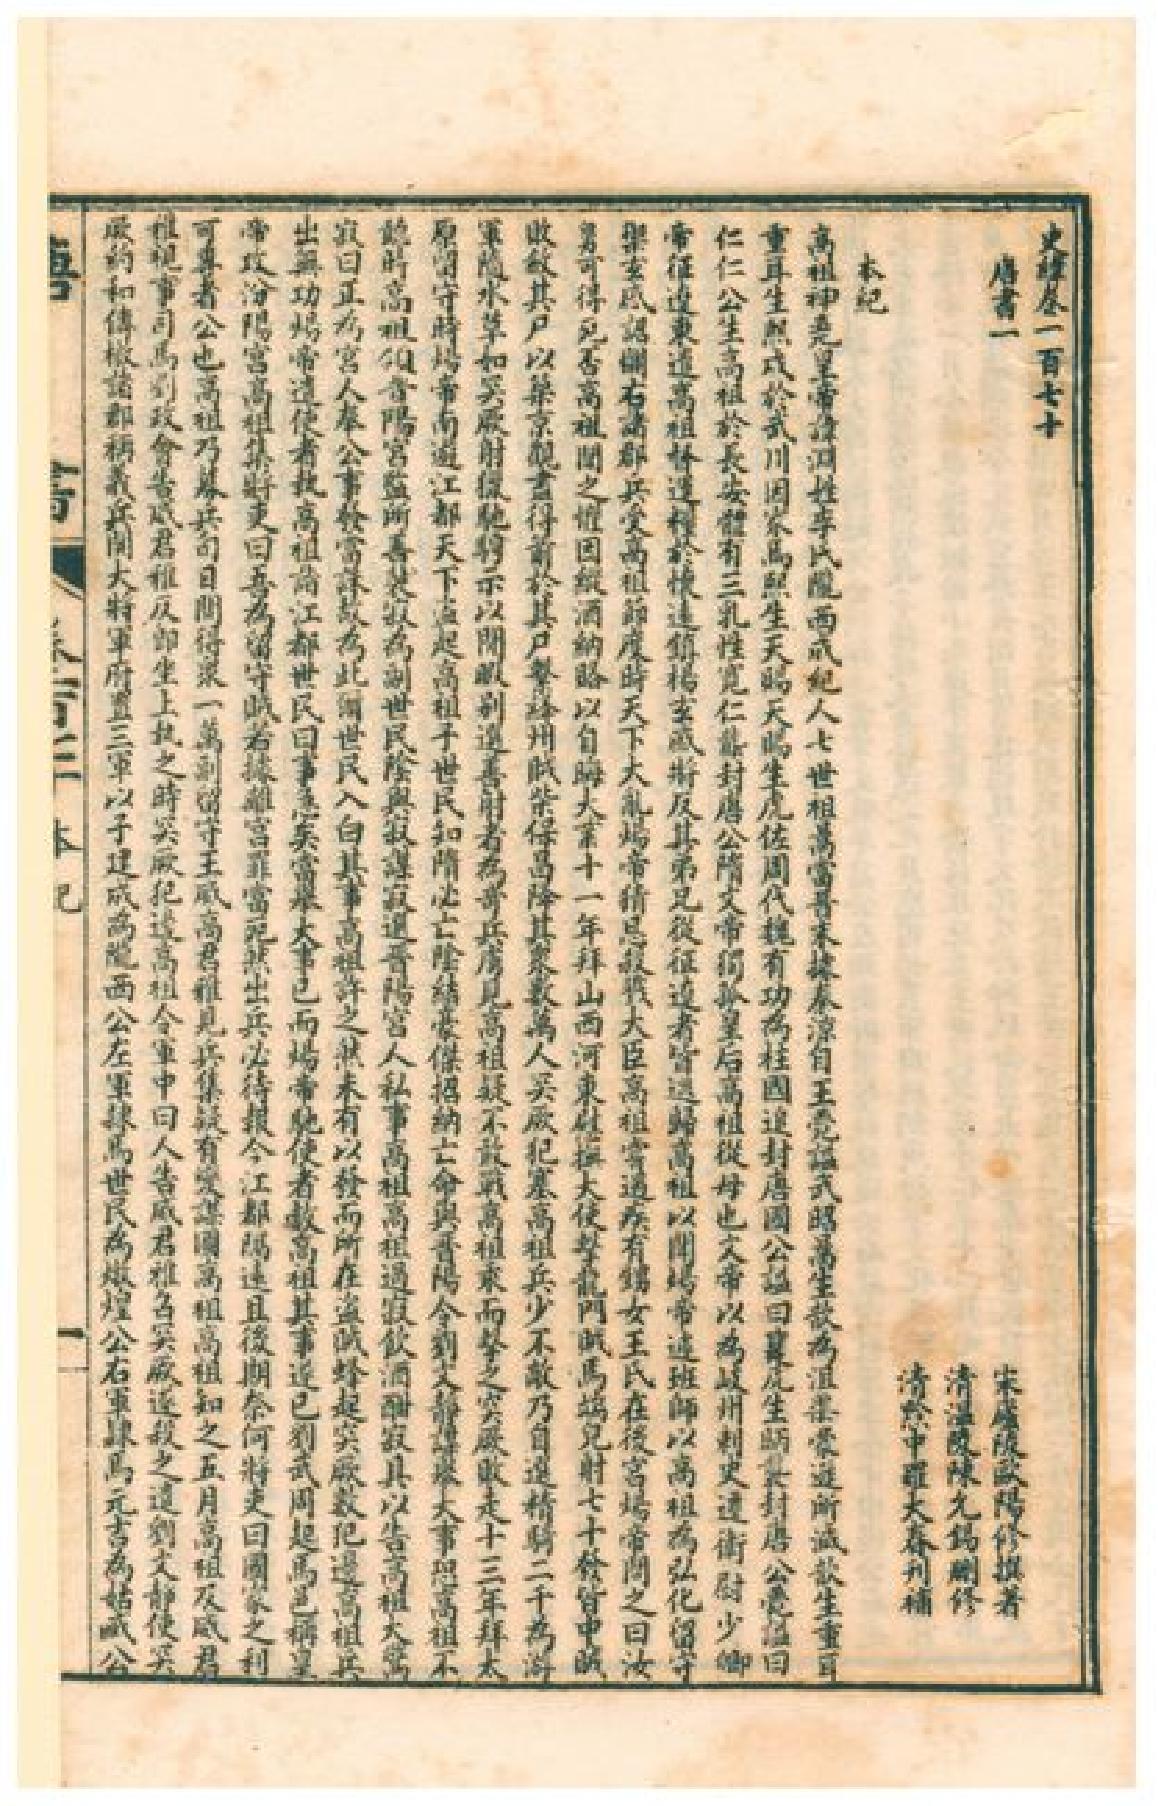 史緯卷一百七十
唐書一
宋廬陵歐陽修撰著
清溫陵陳允錫刪修
清 中羅大春刊補
本紀
高祖神堯皇帝諱淵姓李氏隴西成紀人七世祖暠當晉末據秦涼自王 諡武昭暠生歆為沮渠蒙遜所滅歆生重耳
重耳生熙戍於武川因家焉熙生天賜天賜生虎佐周代魏有功為柱國追封唐國公諡曰襄虎生昞襲封唐公 諡曰
仁仁公生高祖於長安體有三乳性寬仁襲封唐公隋文帝獨孤皇后高祖從母也文帝以為岐州刺史遷衛尉少卿
帝征遼東遣高祖督運糧於懷遠鎮楊玄感將反其弟兄從征遼者皆逃歸高祖以聞煬帝遽班師以高祖為弘化留守
禦玄感詔關右諸郡兵受高祖節度時天下大亂煬帝猜忌殺戮大臣高祖嘗遇疾有甥女王氏在後宮煬帝問之曰汝
舅可得死否高祖聞之懼因縱酒納賂以自晦大業十一年拜山西河東慰撫大使擊龍門賊母端兒射七十發皆中賊
敗斂其尸以築京觀盡得箭於其尸擊絳州賊柴保昌降其眾數萬人突厥犯塞高祖兵少不敵乃自選精騎二千為游
軍隨水草如突厥射獵馳騁示以閒暇別選善射者為奇兵虜見高祖疑不敢戰高祖乘而擊之突厥敗走十三年拜太
原留守時煬帝南遊江都天下盜起高祖子世民知隋必亡陰結豪傑招納亡命與晉陽令劉文靜謀舉大事恐高祖不
聽時高祖領晉陽宮監所善裴寂為副世民陰與寂謀寂選晉陽宮人私事高祖高祖過寂飲酒酣寂具以告高祖大驚
寂曰正為宮人奉公事發當誅故為此爾世民入白其事高祖許之然未有以發而所在盜賊蜂起突厥數犯邊高祖兵
出無功煬帝遣使者執高祖詣江都世民曰事急矣當舉大事已而煬帝馳使者赦高祖其事遂已劉武周起馬邑稱皇
帝攻汾陽宮高祖集將吏曰吾為留守賊若據離宮罪當死然出兵必待報今江都隔遠且後期奈何將吏曰國家之利
可專者公也高祖乃募兵旬日間得眾一萬副留守王威高君雅見兵集疑有變謀圖高祖高祖知之五月高祖及威君
雅視事司馬劉政會告威君雅反即坐上執之時突厥犯邊高祖令軍中曰人告威君雅召突厥遂殺之遣劉文靜使突
厥約和傳檄諸郡稱義兵開大將軍府置三軍以子建成為隴西公左軍隸焉世民為燉煌公右軍隸焉元吉為姑臧公
本紀
一